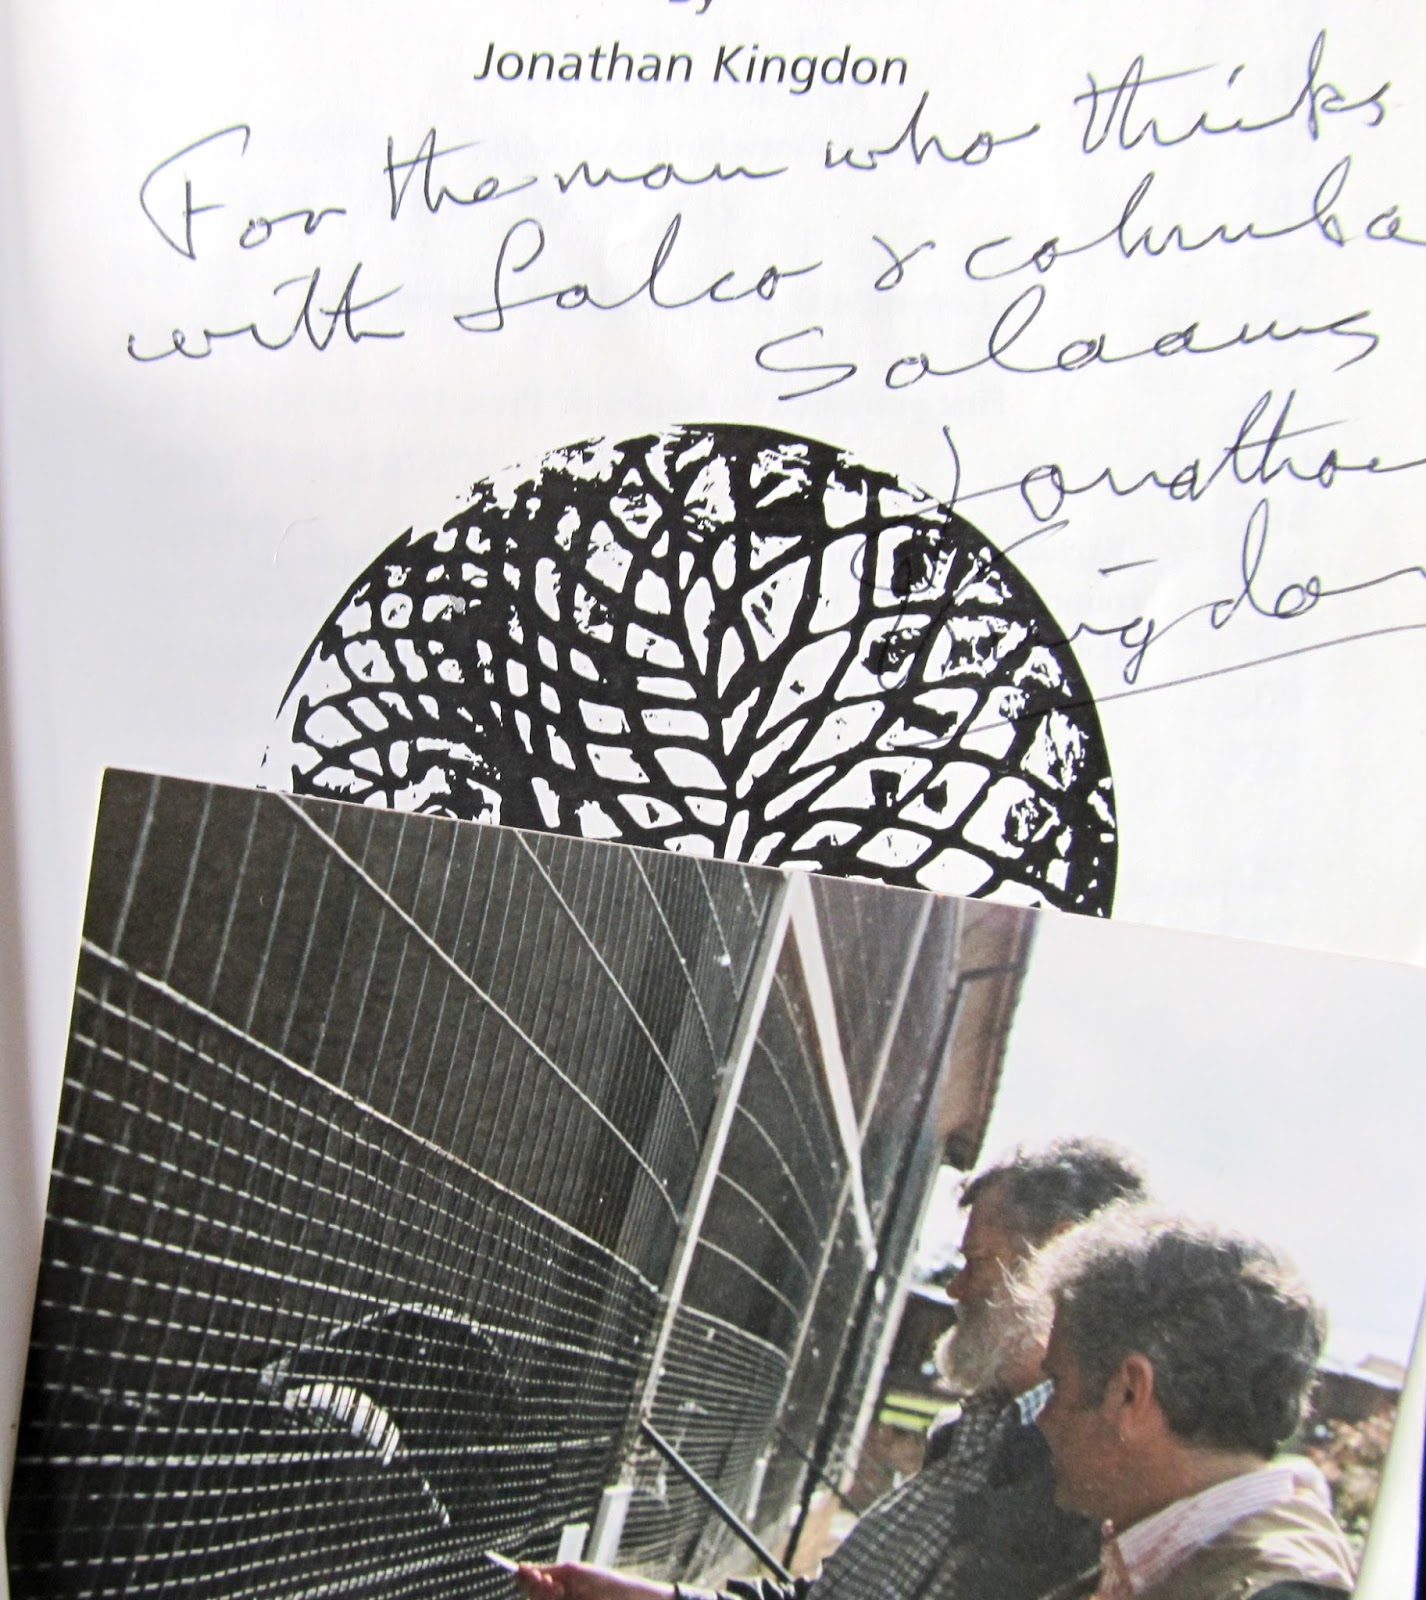 By
Jonathan Kingdon
For the man who thinks
with Falco & columba
Salaams
Jonathan
Kingdon